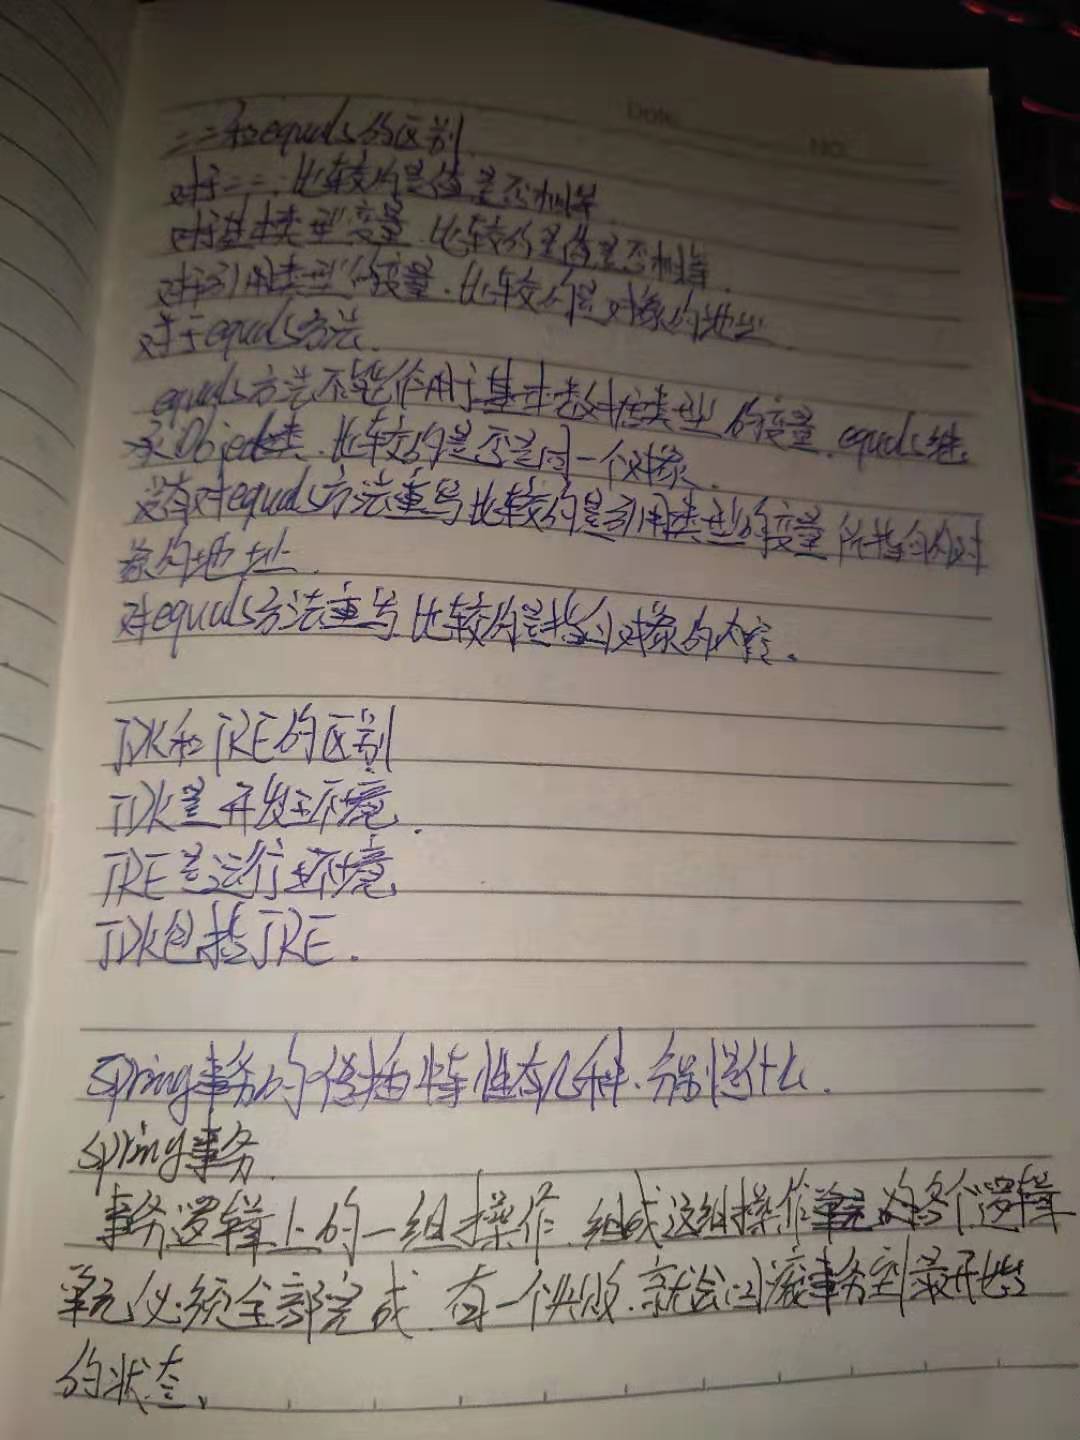 Date
NO
==和equals的区别
对于==,比较的是值是否相等
对于基本类型变量,比较的是值是否相等.
对于引用类型的变量,比较的是对象的地址
对于equals方法.
equals方法不能作用于基本数据类型的变量,equals继
承Object类,比较的是否是同一个对象.
没有对equals方法重写比较的是引用类型的变量所指向的对
象的地址.
对equals方法重写比较的是指向对象的内容.
JDK和JRE的区别
JDK是开发环境.
JRE是运行环境
JDK包括JRE.
Spring事务的传播特性有几种.分别是什么.
Spring事务.
事务逻辑上的一组操作,组成这组操作的各个逻辑
单元必须全部完成,有一个失败,就会回滚事务到最开始
的状态、